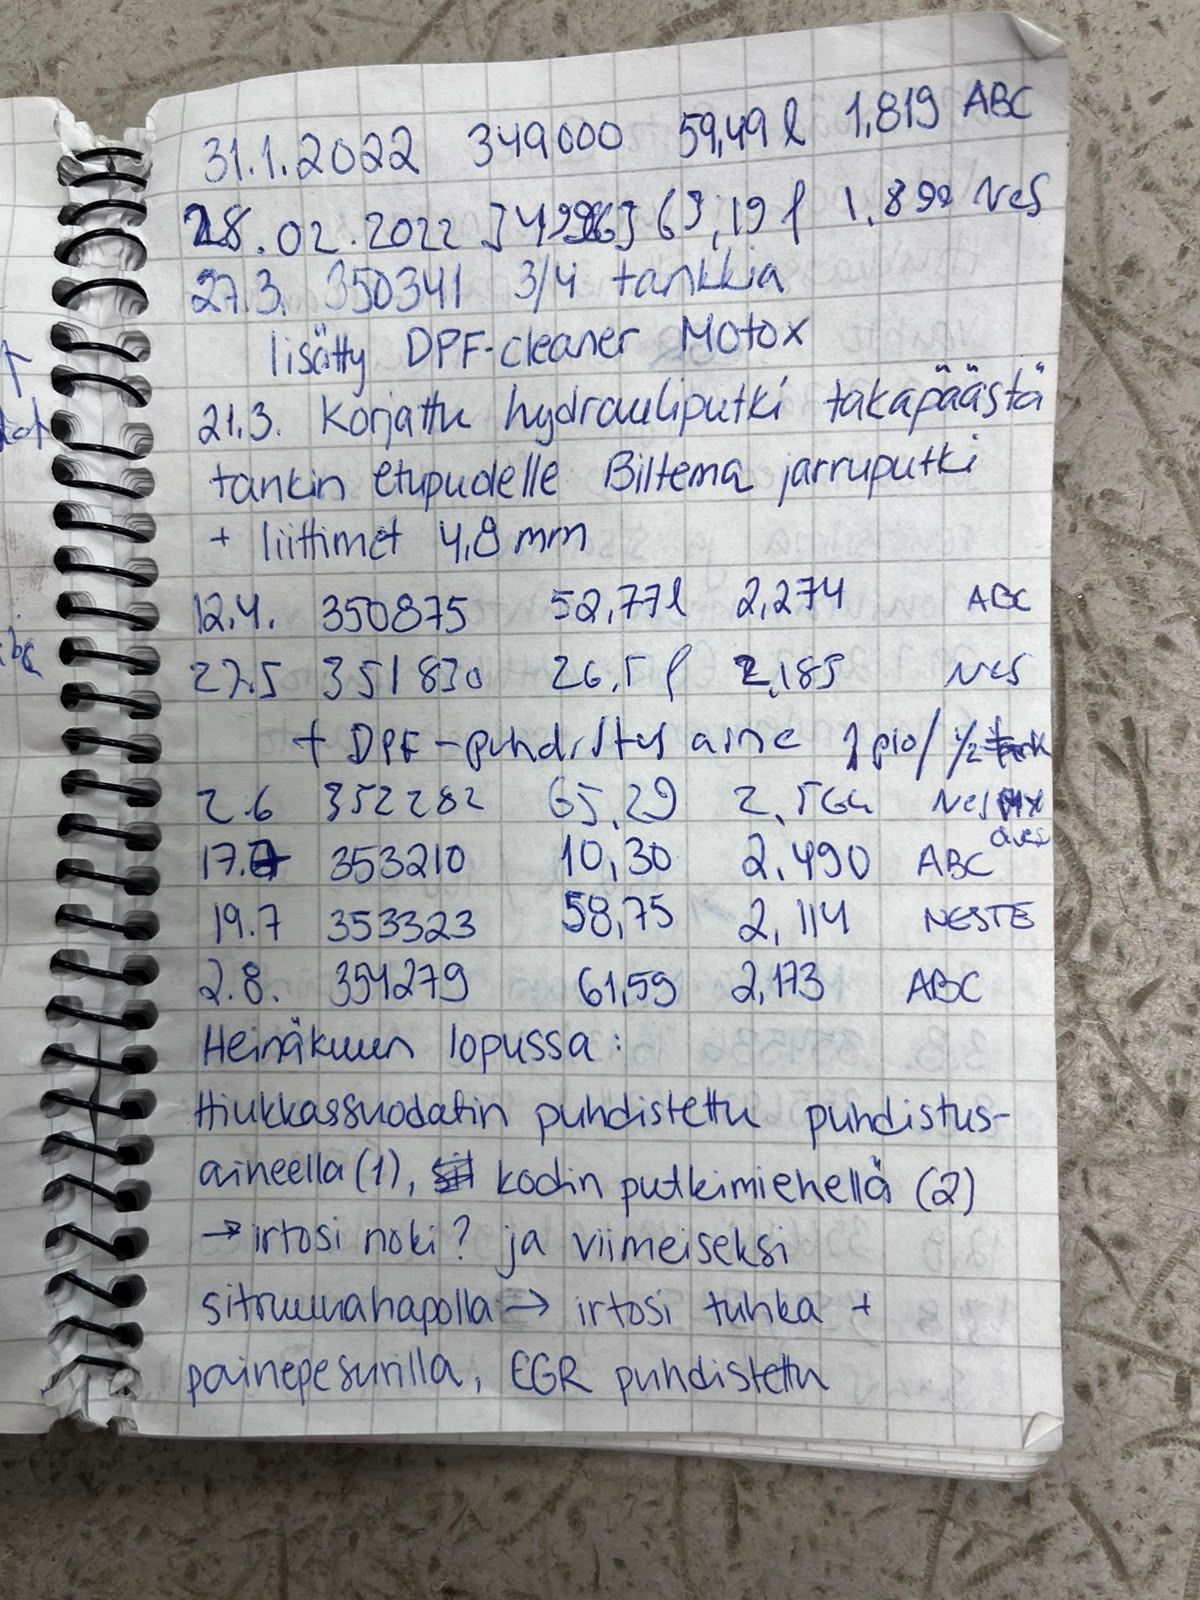 31.1.2022 349000 59,49 l 1,819 ABC
28.02.2022 63,19 l 1,899 Nes
27.3. 350341 3/4 tankkia
lisätty DPF-cleaner Motox
21.3. Korjattu hydrauliputki takapäästä
tankin etupuolelle Biltema jarruputki
+ liittimet 4,8 mm
12.4. 350875 52,77 l 2,274 ABC
27.5 351830 26,5 l 2,185 Nes
+ DPF-puhdistus aine 1 plo/ 1/2 tank
2.6 352282 65,29 2,564 Nes
17.7 353210 10,30 2.490 ABC
19.7 353323 58,75 2,114 NESTE
2.8. 354279 61,59 2,173 ABC
Heinäkuun lopussa:
Hiukkassuodatin puhdistettu puhdistus-
aineella (1), kodin putkimiehellä (2)
→ irtosi noki? ja viimeiseksi
sitruunahapolla → irtosi tuhka +
painepesurilla, EGR puhdistettu